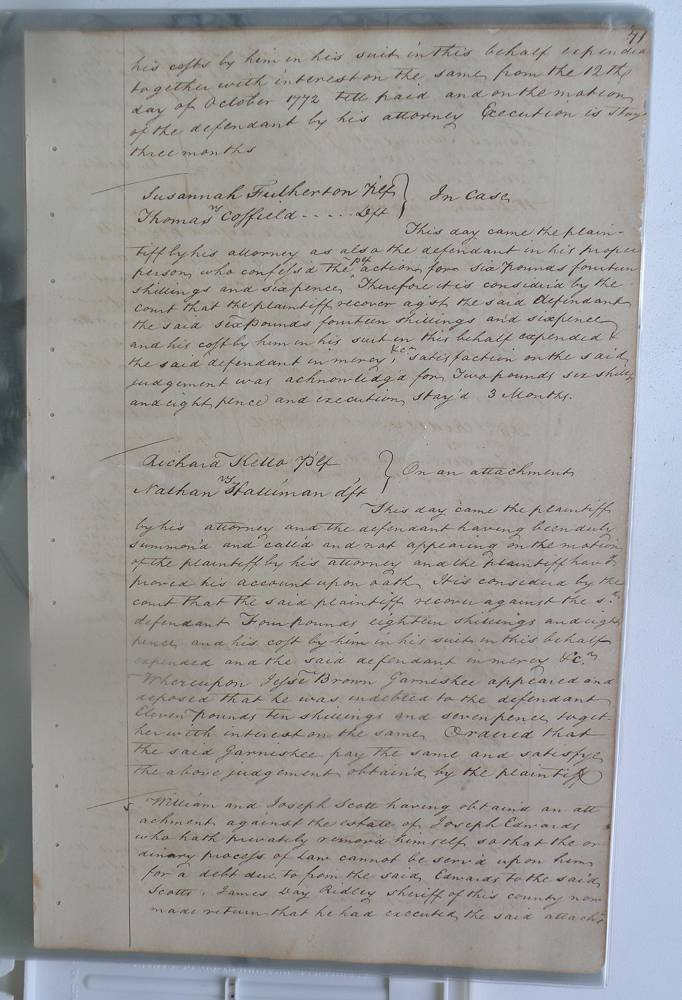 71
his costs by him in his suit in this behalf expended
together with interest on the same from the 12th
day of October 1772 till paid and on the motion
of the defendant by his attorney Execution is stay'd
three months
Susannah Fulherton Plf
vs
Thomas Coffield ..... Dft
In Case
This day came the plain-
tiff by his attorney as also the defendant in his proper
person who confess'd the plfs action for six pounds fourteen
shillings and sixpence Therefore it is consider'd by the
court that the plaintiff recover agst the said defendant
the said six pounds fourteen shillings and sixpence
and his cost by him in his suit in this behalf expended &
the said defendant in mercy &c. satisfaction on the said
judgement was acknowledg'd for Two pounds six shills
and eight pence and execution stay'd 3 Months.
Richard Kello Plf
vs
Nathan Halliman dft
On an attachment
This day came the plaintiff
by his attorney and the defendant having been duly
summon'd and call'd and not appearing on the motion
of the plaintiff by his attorney and the plaintiff havg
proved his account upon oath It is considerd by the
court that the said plaintiff recover against the sd
defendant Four pounds eighteen shillings and eight
pence and his cost by him in his suit in this behalf
expended and the said defendant in mercy &c.
Whereupon Jesse Brown Garnishee appeared and
deposed that he was indebted to the defendant
Eleven pounds ten shillings and seven pence toget
her with interest on the same Ordered that
the said Garnishee pay the same and satisfye
the above judgement obtain'd by the plaintiff
William and Joseph Scott having obtaind an att
achment against the estate of Joseph Edwards
who hath privately remov'd himself so that the or
dinary process of Law cannot be serv'd upon him
for a debt due to from the said Edwards to the said
Scotts. James Day Ridley sheriff of this county now
made return that he had executed the said attach't